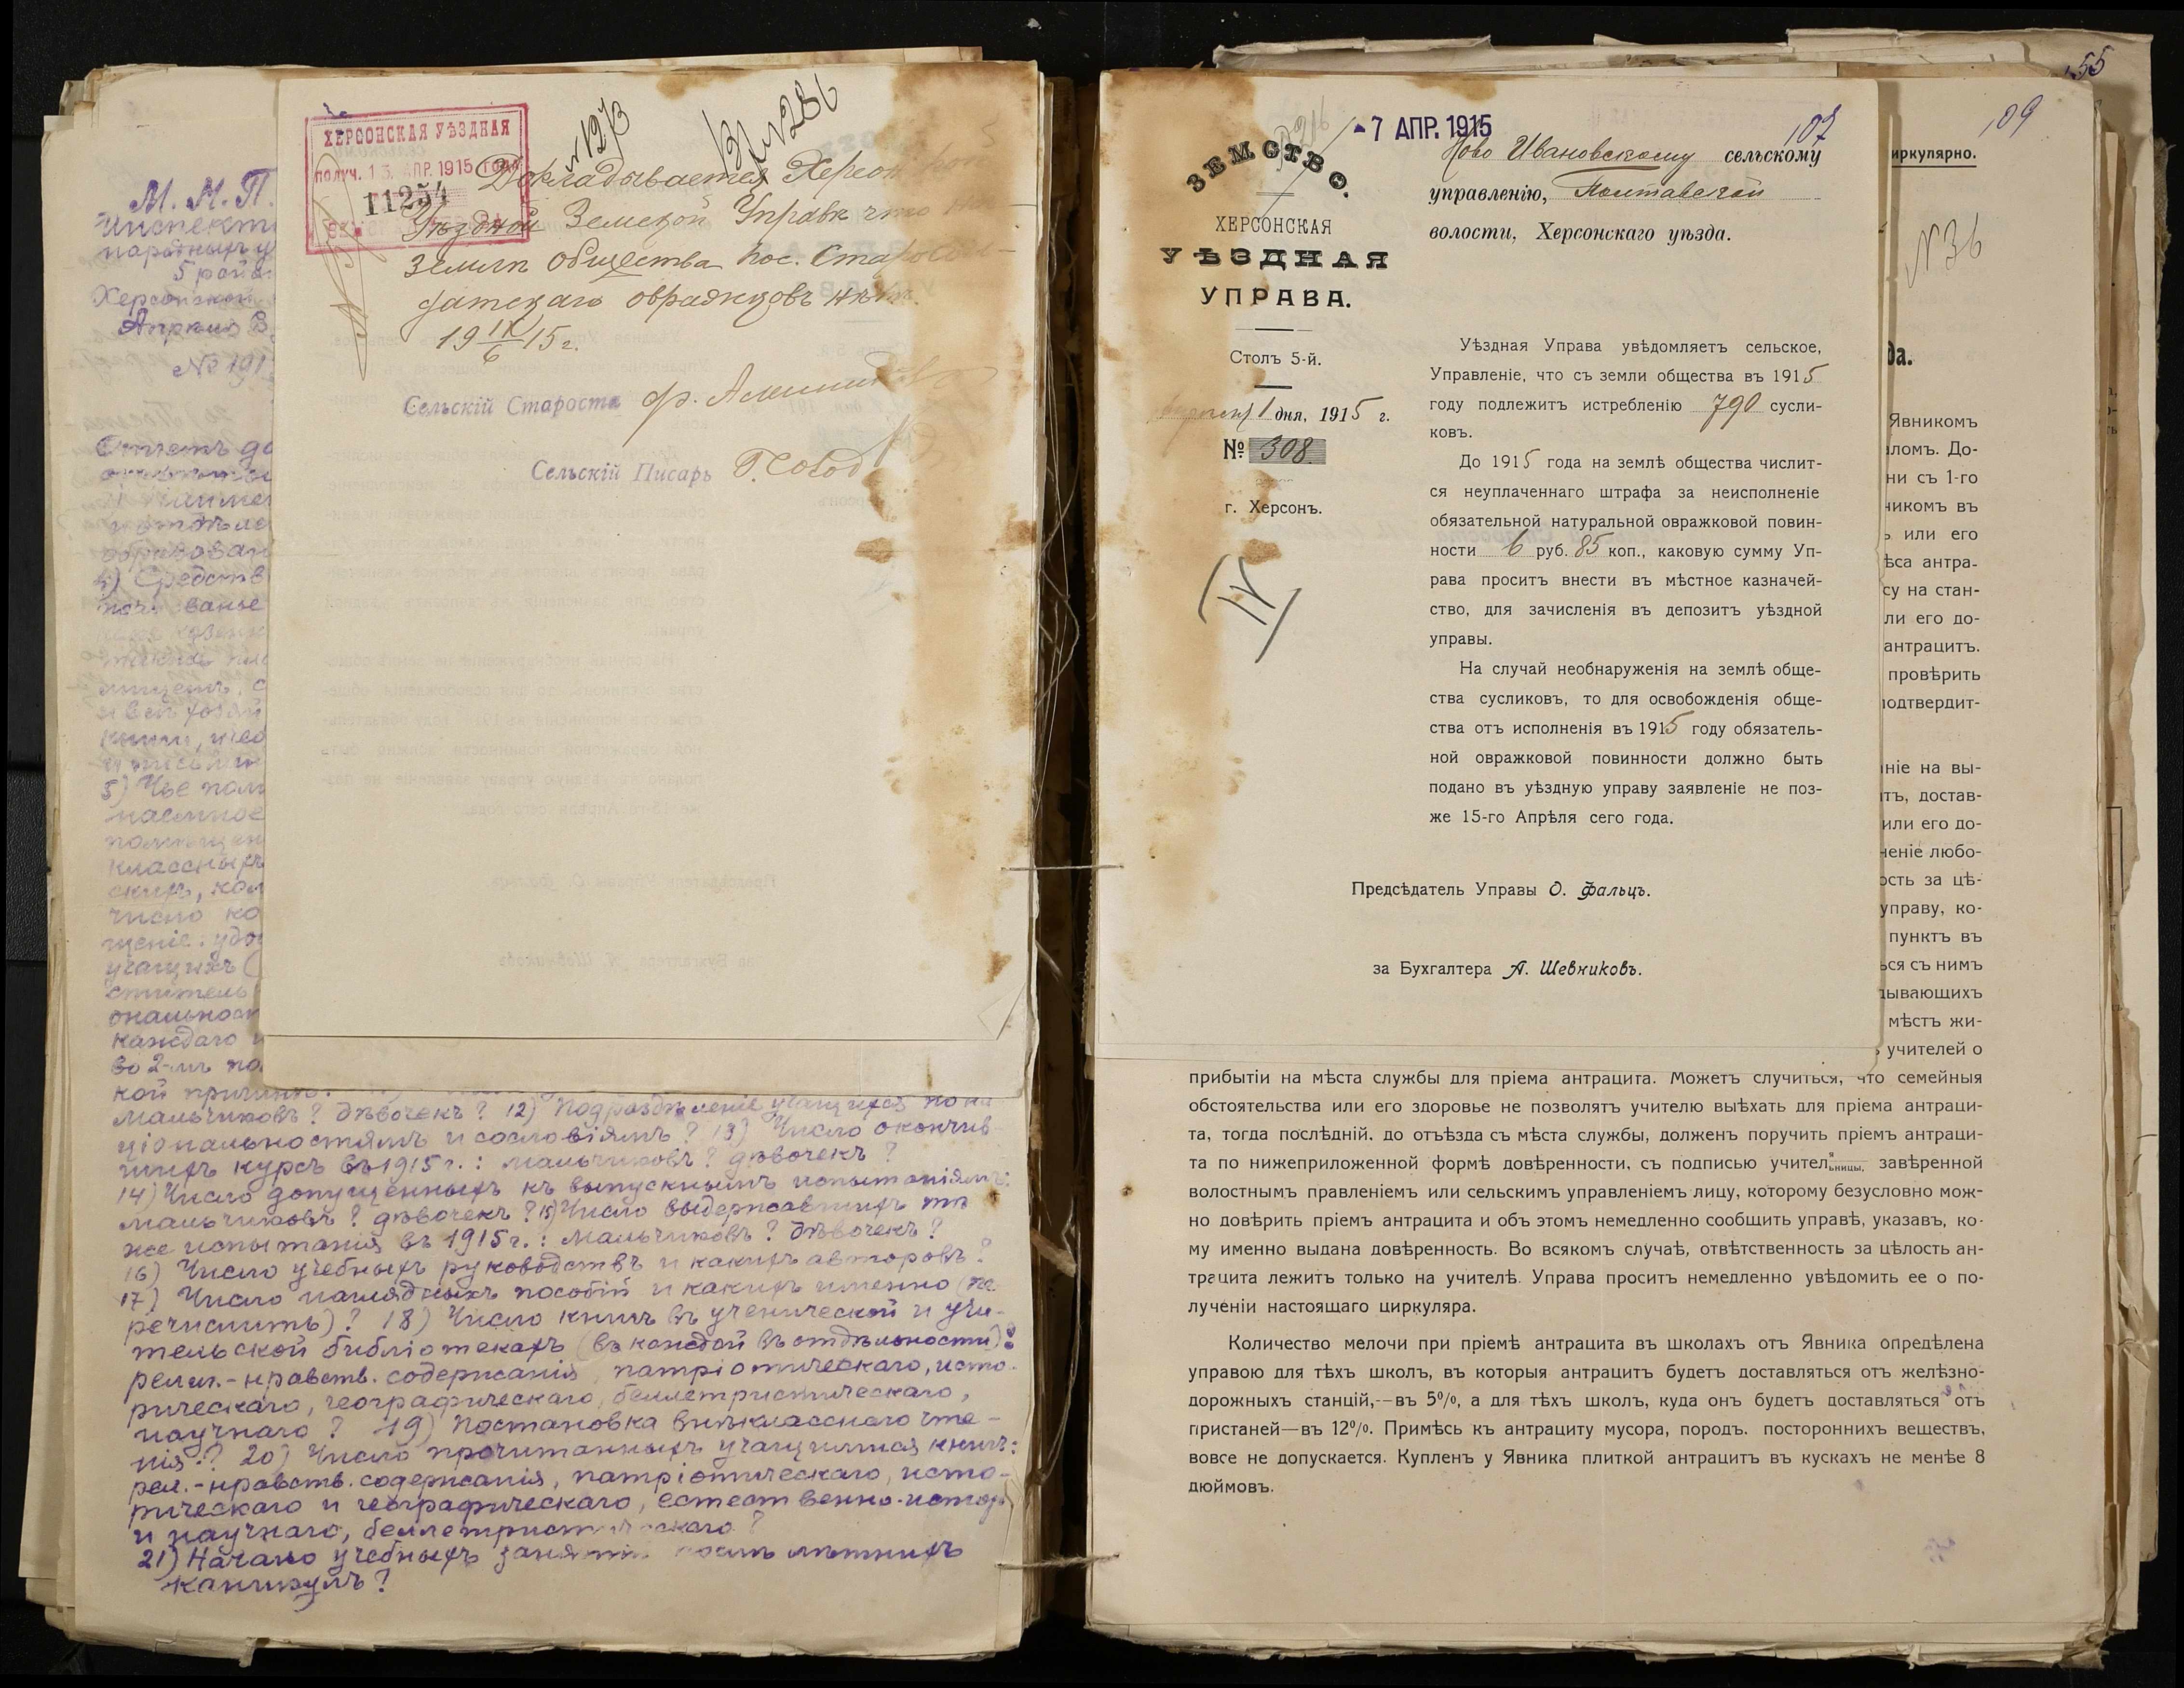 М. Н. П.
Инспект
народныхъ у
5 рай
Херсонской
Апрѣля 8
№ 191
Отчетъ до
4) Средств
5) Чье пом
наемное
помѣщен
классныхъ
скихъ, кол
число ко
щеніе: удо
учащихъ (
каждаго и
во 2-мъ по
кой причинѣ?
мальчиковъ? дѣвочекъ? 12) Подраздѣленіе учащихся по на
ціональностямъ и сословіямъ? 13) Число окончив-
шихъ курсъ въ 1915 г.: мальчиковъ? дѣвочекъ?
14) Число допущенныхъ къ выпускнымъ испытаніямъ:
мальчиковъ? дѣвочекъ? 15) Число выдержавшихъ тѣ
же испытанія въ 1915 г.: мальчиковъ? дѣвочекъ?
16) Число учебныхъ руководствъ и какихъ авторовъ?
17) Число наглядныхъ пособій и какихъ именно (пе
речислить)? 18) Число книгъ въ ученической и учи-
тельской библіотекахъ (въ каждой въ отдѣльности):
религ.-нравств. содержанія, патріотическаго, исто-
рическаго, географическаго, беллетристическаго,
научнаго? 19) Постановка внѣкласснаго чте-
нія? 20) Число прочитанныхъ учащимися книгъ:
рел.-нравств. содержанія, патріотическаго, исто-
рическаго и географическаго, естественно-истор
и научнаго, беллетристическаго?
21) Начало учебныхъ занятій послѣ лѣтнихъ
каникулъ?
ХЕРСОНСКАЯ УѢЗДНАЯ
получ. 13 АПР. 1915 года
11254
№ 1213
№ 286
Докладывается Херсон
Уѣздной Земской Управѣ что на
землѣ общества пос. Старосол-
датскаго овражковъ нѣтъ.
19 IV/6 15 г.
Сельскій Староста Ф.
Сельскій Писарь Г.
- 7 АПР. 1915
107
ЗЕМСТВО.
ХЕРСОНСКАЯ
УѢЗДНАЯ
УПРАВА.
Столъ 5-й.
1 дня, 1915 г.
№ 308
г. Херсонъ.
IV
Ново Ивановскому сельскому
управленію, Полтавской
волости, Херсонскаго уѣзда.
Уѣздная Управа увѣдомляетъ сельское,
Управленіе, что съ земли общества въ 1915
году подлежитъ истребленію 790 сусли-
ковъ.
До 1915 года на землѣ общества числит-
ся неуплаченнаго штрафа за неисполненіе
обязательной натуральной овражковой повин-
ности 6 руб. 85 коп., каковую сумму Уп-
рава проситъ внести въ мѣстное казначей-
ство, для зачисленія въ депозитъ уѣздной
управы.
На случай необнаруженія на землѣ обще-
ства сусликовъ, то для освобожденія обще-
ства отъ исполненія въ 1915 году обязатель-
ной овражковой повинности должно быть
подано въ уѣздную управу заявленіе не поз-
же 15-го Апрѣля сего года.
Предсѣдатель Управы О. Фальцъ.
за Бухгалтера А. Шевниковъ.
55
109
иркулярно.
№ 36
да.
Явникомъ
ломъ. До-
ни съ 1-го
чикомъ въ
ь или его
ѣса антра-
су на стан-
ли его до-
антрацитъ.
провѣрить
подтвердит-
ніе на вы-
тъ, достав-
или его до-
ченіе любо-
ость за цѣ-
управу, ко-
пунктъ въ
ься съ нимъ
дывающихъ
мѣстъ жи-
ъ учителей о
прибытіи на мѣста службы для пріема антрацита. Можетъ случиться, что семейныя
обстоятельства или его здоровье не позволятъ учителю выѣхать для пріема антраци-
та, тогда послѣдній. до отъѣзда съ мѣста службы, долженъ поручить пріемъ антраци-
та по нижеприложенной формѣ довѣренности, съ подписью учител я/ьницы, завѣренной
волостнымъ правленіемъ или сельскимъ управленіемъ лицу, которому безусловно мож-
но довѣрить пріемъ антрацита и объ этомъ немедленно сообщить управѣ, указавъ, ко-
му именно выдана довѣренность. Во всякомъ случаѣ, отвѣтственность за цѣлость ан-
трацита лежитъ только на учителѣ. Управа проситъ немедленно увѣдомить ее о по-
лученіи настоящаго циркуляра.
Количество мелочи при пріемѣ антрацита въ школахъ отъ Явника опредѣлена
управою для тѣхъ школъ, въ которыя антрацитъ будетъ доставляться отъ желѣзно-
дорожныхъ станцій,--въ 5%, а для тѣхъ школъ, куда онъ будетъ доставляться отъ
пристаней—въ 12%. Примѣсь къ антрациту мусора, породъ. постороннихъ веществъ,
вовсе не допускается. Купленъ у Явника плиткой антрацитъ въ кускахъ не менѣе 8
дюймовъ.